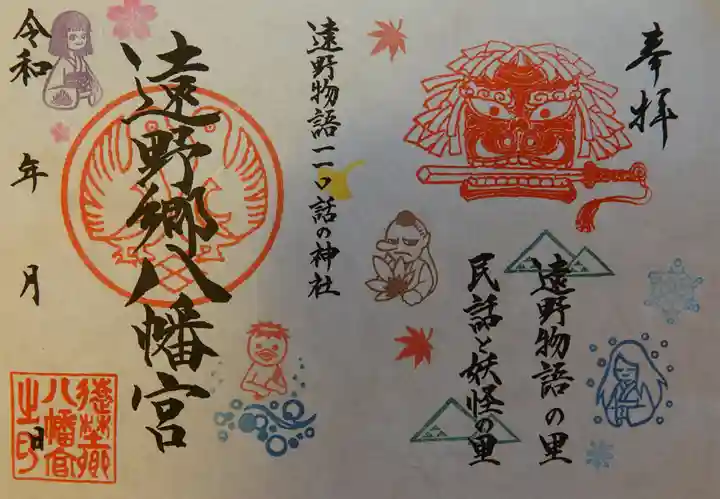 奉拝
遠野物語の里
民話と妖怪の里
遠野物語一一〇話の神社
遠野郷八幡宮
令和
年
月
日
遠野郷
八幡宮
之印